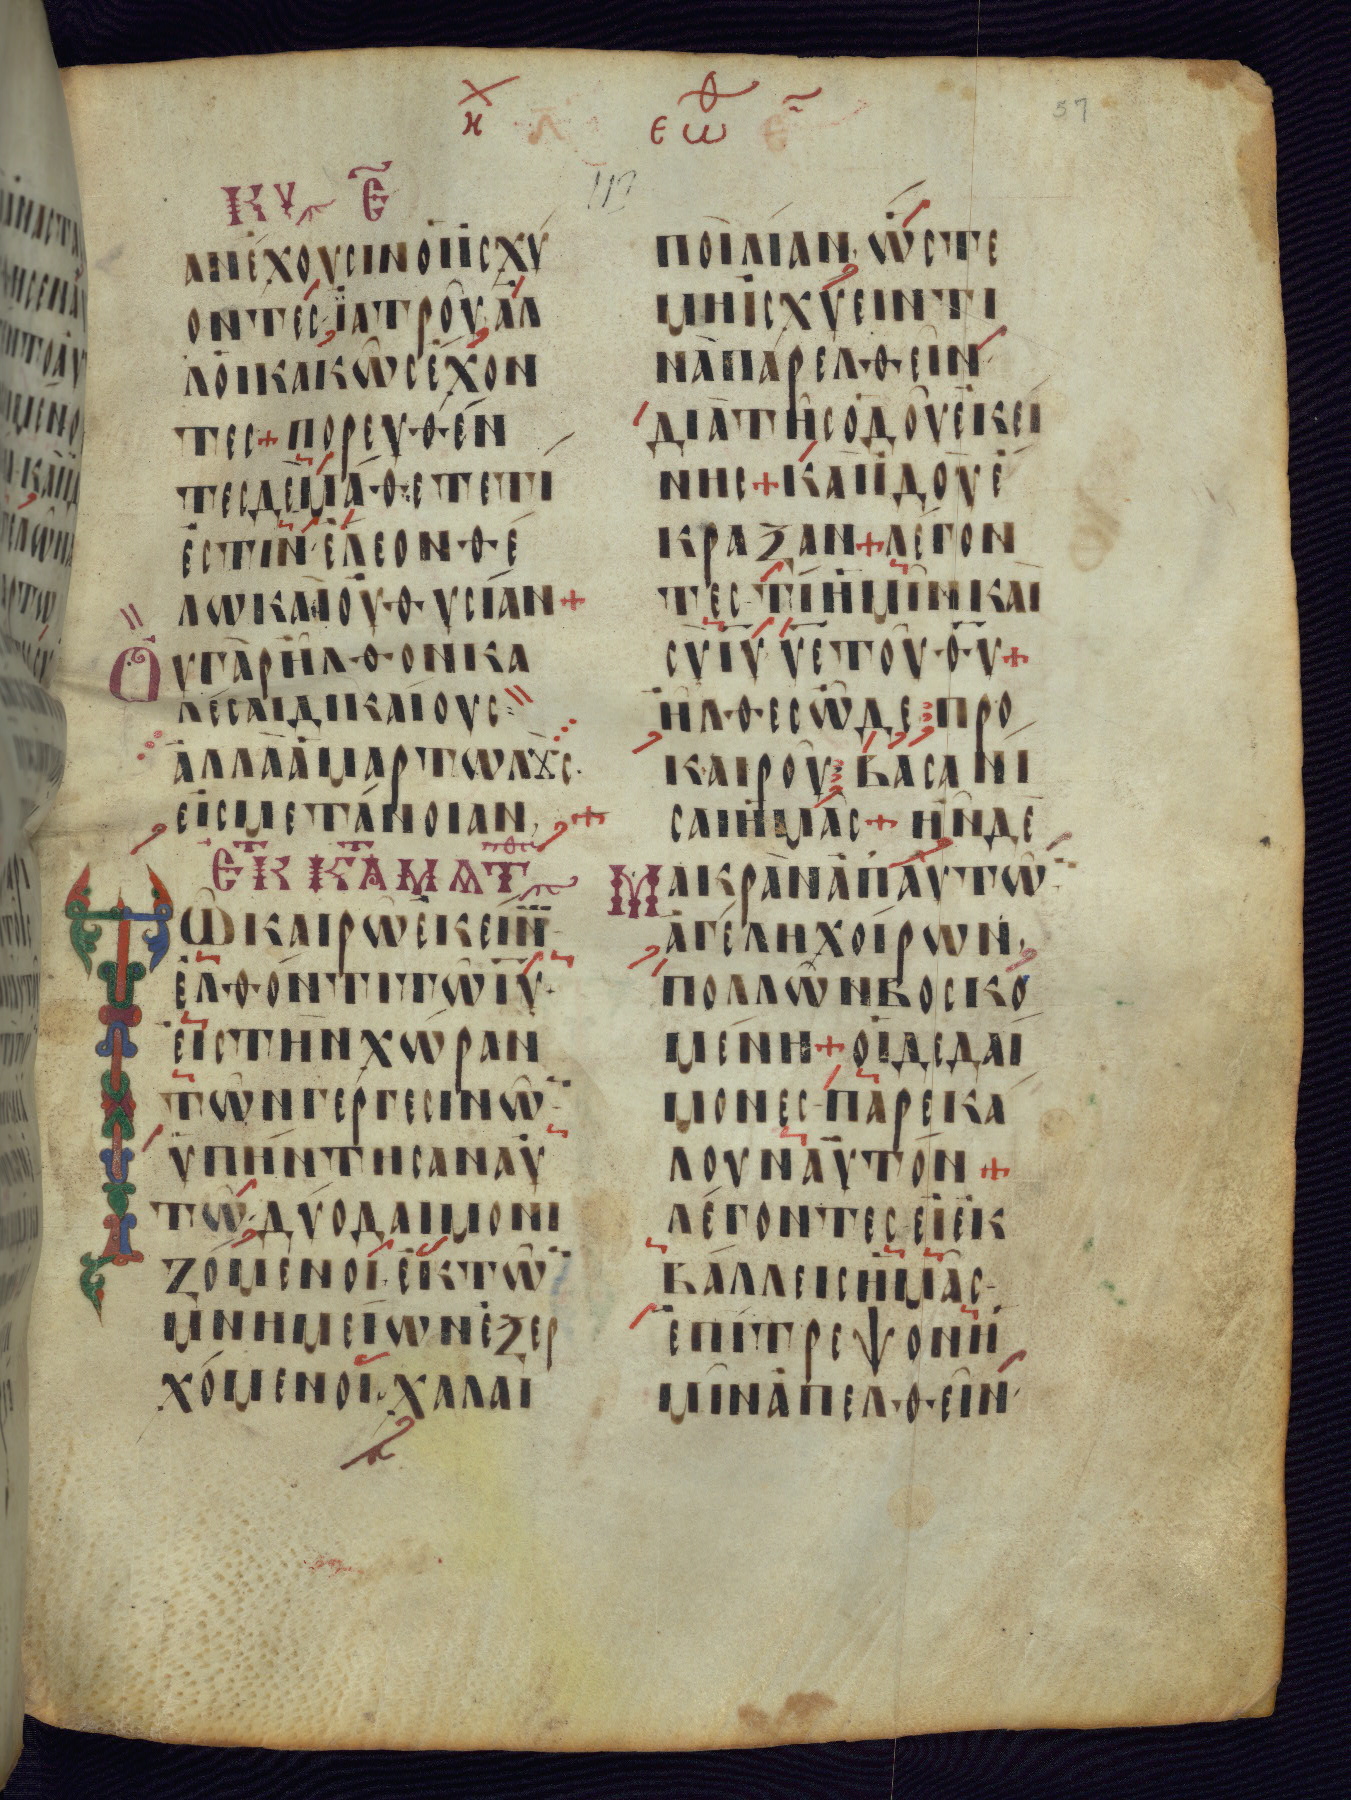 57
ΚΥ Ε̄
ΑΝΕΧΟΥCΙΝΟΙΙCΧΥ
ΟΝΤΕC·ΙΑΤΡΟΥ·ΑΛ
ΛΟΙΚΑΚΩCΕΧΟΝ
ΤΕC+ΠΟΡΕΥΘΕΝ
ΤΕCΔΕΜΑΘΕΤΕΤΙ
ΕCΤΙΝ·ΕΛΕΟΝΘΕ
ΛΩΚΑΙΟΥΘΥCΙΑΝ+
ΟΥΓΑΡΗΛΘΟΝΚΑ
ΛΕCΑΙΔΙΚΑΙΟΥC
ΑΛΛΑΑΜΑΡΤΩΛΟΥC
ΕΙCΜΕΤΑΝΟΙΑΝ,+
ΕΚ Κ̄ΑΜΑΤ
ΤΩΚΑΙΡΩΕΚΕΙΝ
ΕΛΘΟΝΤΙΤΩΙΥ·
ΕΙCΤΗΝΧΩΡΑΝ
ΤΩΝΓΕΡΓΕCΙΝΩ
ΥΠΗΝΤΗCΑΝΑΥ
ΤΩ·ΔΥΟΔΑΙΜΟΝΙ
ΖΟΜΕΝΟΙ·ΕΚΤΩ
ΜΝΗΜΕΙΩΝΕΞΕΡ
ΧΟΜΕΝΟΙ·ΧΑΛΑΙ
ΠΟΙΛΙΑΝ,ΩCΤΕ
ΜΗΙCΧΥΕΙΝΤΙ
ΝΑΠΑΡΕΛΘΕΙΝ·
ΔΙΑΤΗCΟΔΟΥΕΚΕΙ
ΝΗC+ΚΑΙΙΔΟΥΕ
ΚΡΑΞΑΝ+ΛΕΓΟΝ
ΤΕC·ΤΙΗΜΙΝΚΑΙ
CΥΙΥ·ΥΕΤΟΥΘΥ+
ΗΛΘΕCΩΔΕΠΡΟ
ΚΑΙΡΟΥΒΑCΑΝΙ
CΑΙΗΜΑC+ΗΝΔΕ
ΜΑΚΡΑΝΑΠΑΥΤΩ
ΑΓΕΛΗΧΟΙΡΩΝ,
ΠΟΛΛΩΝΒΟCΚΟ
ΜΕΝΗ+ΟΙΔΕΔΑΙ
ΜΟΝΕC·ΠΑΡΕΚΑ
ΛΟΥΝΑΥΤΟΝ+
ΛΕΓΟΝΤΕC·ΕΙΕΚ
ΒΑΛΛΕΙCΗΜΑC·
ΕΠΙΤΡΕΨΟΝΗ
ΜΙΝΑΠΕΛΘΕΙΝ·